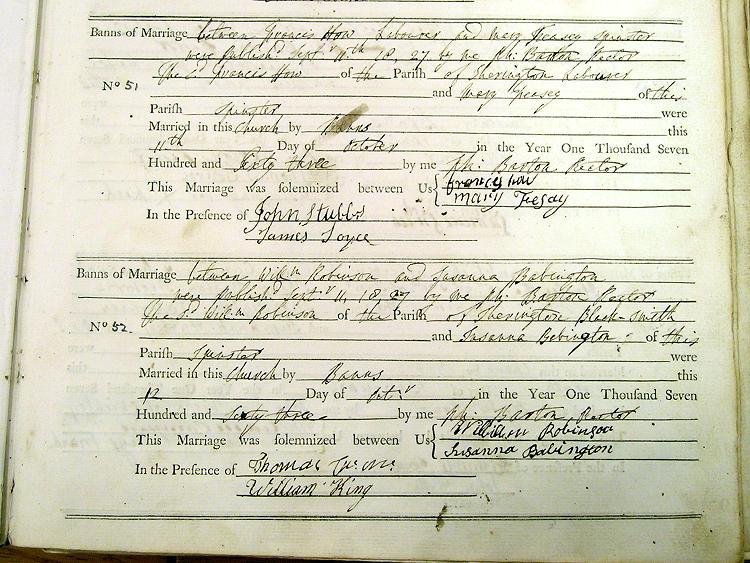 Banns of Marriage between Francis How, Labourer and Mary Feasey Spinster
were Publish: Septr 11th 18, 27 by me Ph: Barton Rector
No 51 The Sd Francis How of the Parish of Sherington Labourer
and Mary Feasey of this
Parish Spinster were
Married in this Church by Banns this
11th Day of October in the Year One Thousand Seven
Hundred and Sixty three by me Ph: Barton Rector
This Marriage was solemnized between Us Francis How
Mary Fesay
In the Presence of John Stubbs
James Joyce
Banns of Marriage between Wilm Robinson and Susanna Babington
were Publish: Septr 11, 18, 27 by me Ph: Barton Rector
No 52. The Sd Wilm Robinson of the Parish of Sherington Black-smith
and Susanna Bebington of this
Parish Spinster were
Married in this Church by Banns this
12 Day of Octr in the Year One Thousand Seven
Hundred and Sixty three by me Ph: Barton Rector
This Marriage was solemnized between Us William Robinson
Susanna Babington
In the Presence of Thomas
William King